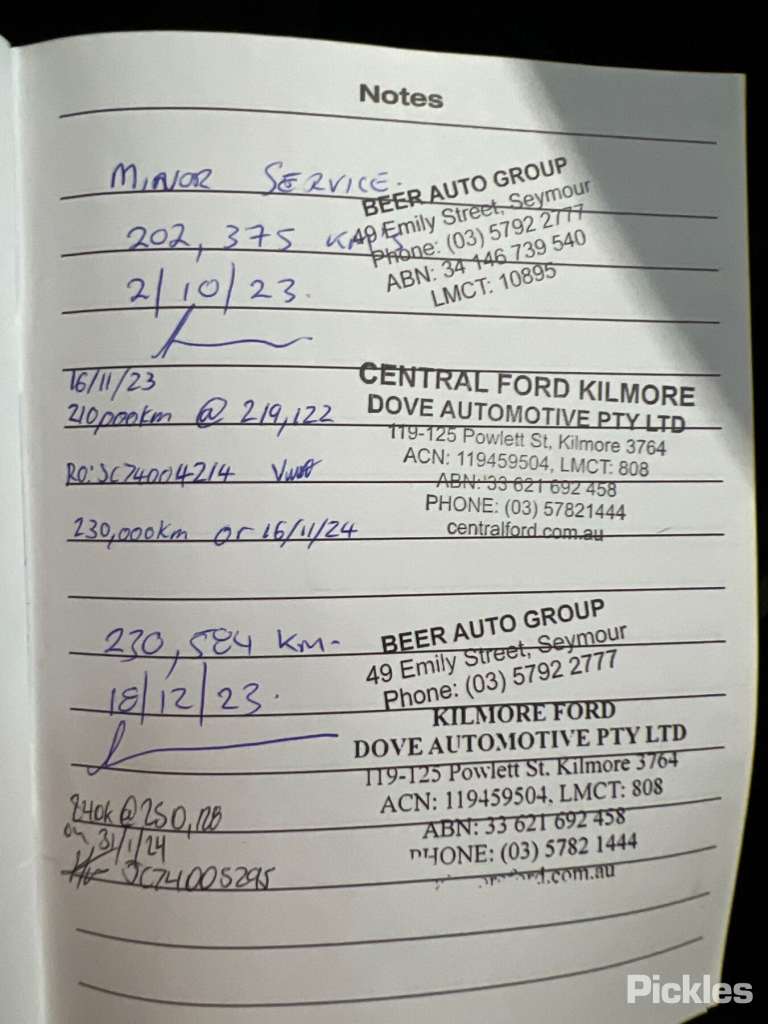 Notes
MINOR SERVICE.
BEER AUTO GROUP
49 Emily Street, Seymour
Phone: (03) 5792 2777
ABN: 34 146 739 540
LMCT: 10895
202,375 KMS
2/10/23.
16/11/23
210,000km @ 219,122
RO: JC74004214
230,000km or 16/11/24
CENTRAL FORD KILMORE
DOVE AUTOMOTIVE PTY LTD
119-125 Powlett St, Kilmore 3764
ACN: 119459504, LMCT: 808
ABN: 33 621 692 458
PHONE: (03) 57821444
centralford.com.au
230,584 KM-
18/12/23.
BEER AUTO GROUP
49 Emily Street, Seymour
Phone: (03) 5792 2777
KILMORE FORD
DOVE AUTOMOTIVE PTY LTD
119-125 Powlett St, Kilmore 3764
ACN: 119459504, LMCT: 808
ABN: 33 621 692 458
PHONE: (03) 5782 1444
.com.au
240k @ 250,128
on 31/1/24
JC74005295
Pickles